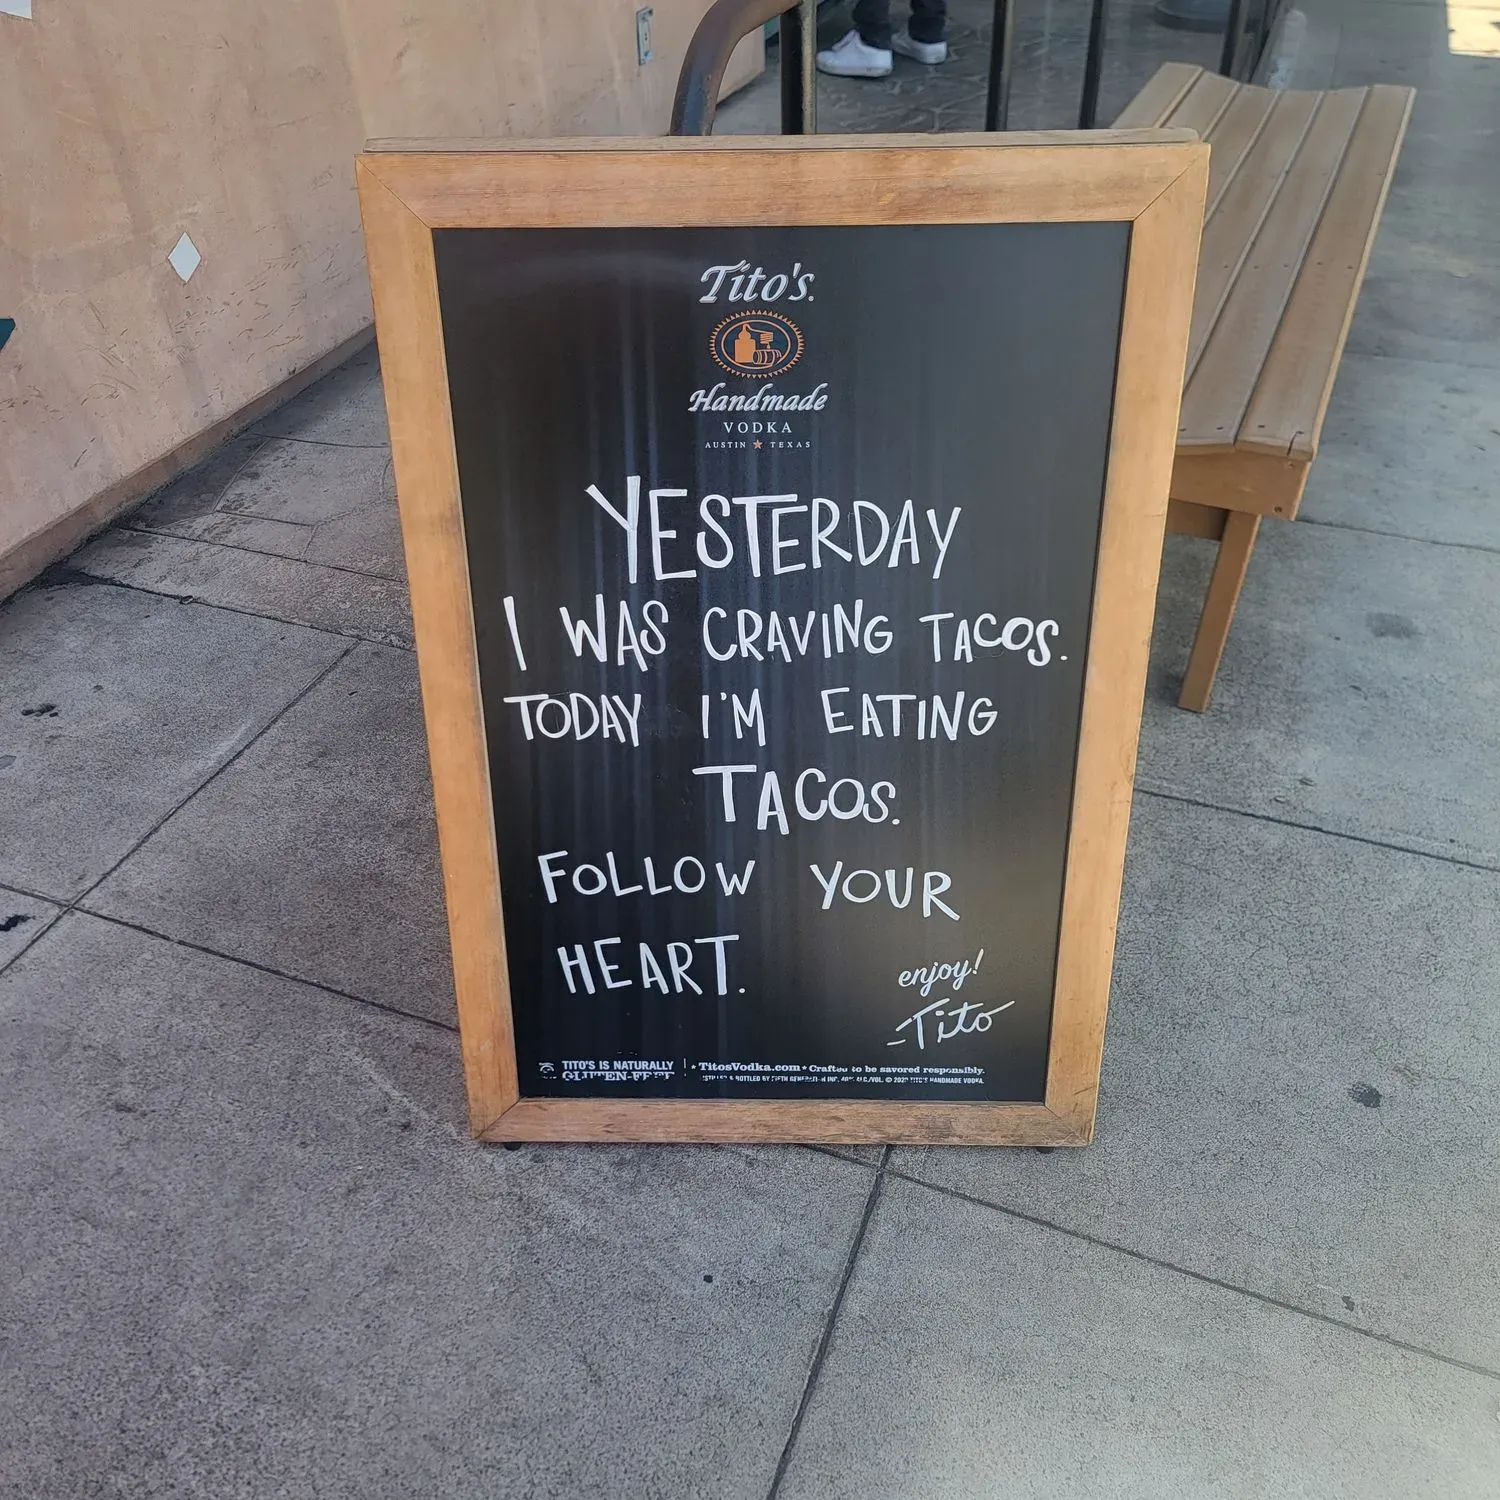 Tito's.
Handmade
VODKA
AUSTIN ★ TEXAS
YESTERDAY
I WAS CRAVING TACOS.
TODAY I'M EATING
TACOS.
FOLLOW YOUR
HEART.
enjoy!
-Tito
TITO'S IS NATURALLY
GLUTEN-FREE
★ TitosVodka.com ★ Crafted to be savored responsibly.
& BOTTLED BY FIFTH GENERATION INC. 40% ALC./VOL. © TITO'S HANDMADE VODKA.